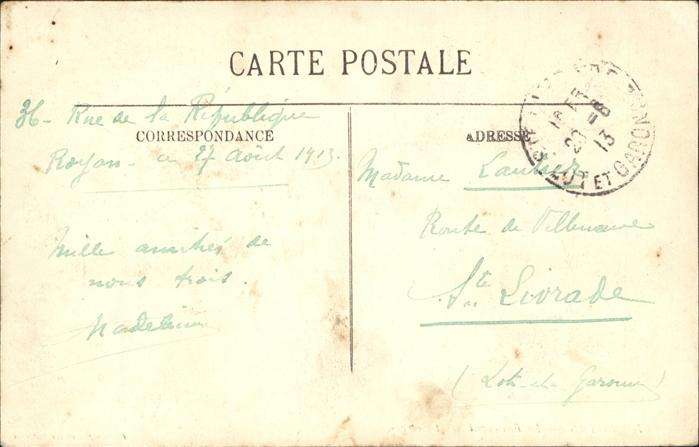 CARTE POSTALE
36 - Rue de la République
CORRESPONDANCE
Royan - ce 27 Août 1913.
Mille amitiés de
nous trois.
Madeleine
ADRESSE
Madame
Route de Villeneuve
Ste Livrade
(Lot-et-Garonne)
29 -8
13
LOT ET GARONNE